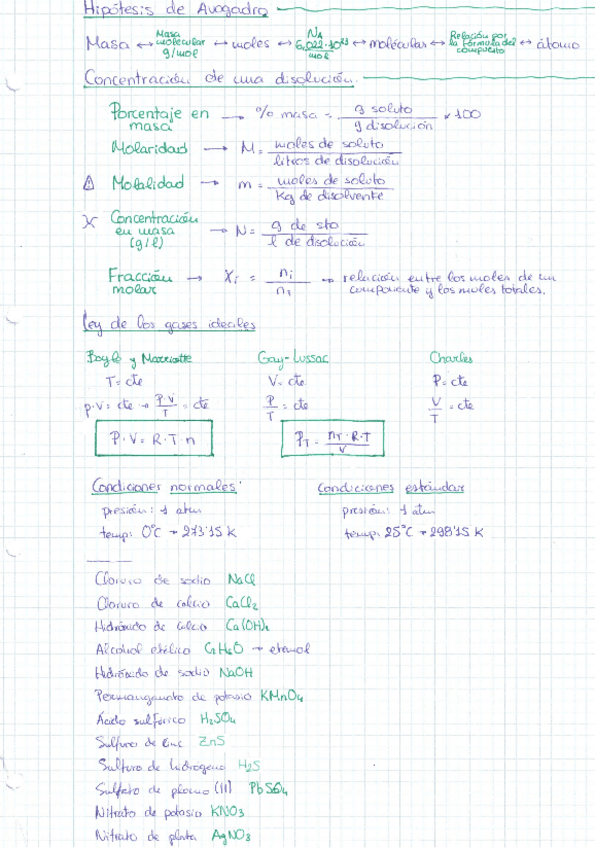 Hipótesis de Avogadro
Masa ↔ Masa molecular g/mol ↔ moles ↔ NA 6,022·10²³ mol ↔ moléculas ↔ Relación por la fórmula del compuesto ↔ átomo
Concentración de una disolución
Porcentaje en masa → % masa = g soluto / g disolución × 100
Molaridad → M = moles de soluto / litros de disolución
⚠ Molalidad → m = moles de soluto / Kg de disolvente
Concentración en masa (g/l) → N = g de sto / l de disolución
Fracción molar → Xi = ni / nT → relación entre los moles de un componente y los moles totales.
Ley de los gases ideales
Boyle y Mariotte Gay-Lussac Charles
T = cte V = cte P = cte
p·V = cte → P·V / T = cte P / T = cte V / T = cte
P·V = R·T·n PT = nT·R·T / V
Condiciones normales Condiciones estándar
presión: 1 atm presión: 1 atm
temp: 0°C → 273'15 K temp: 25°C → 298'15 K
Cloruro de sodio NaCl
Cloruro de calcio CaCl₂
Hidróxido de calcio Ca(OH)₂
Alcohol etílico C₂H₆O → etanol
Hidróxido de sodio NaOH
Permanganato de potasio KMnO₄
Ácido sulfúrico H₂SO₄
Sulfuro de zinc ZnS
Sulfuro de hidrogeno H₂S
Sulfato de plomo (II) PbSO₄
Nitrato de potasio KNO₃
Nitrato de plata AgNO₃